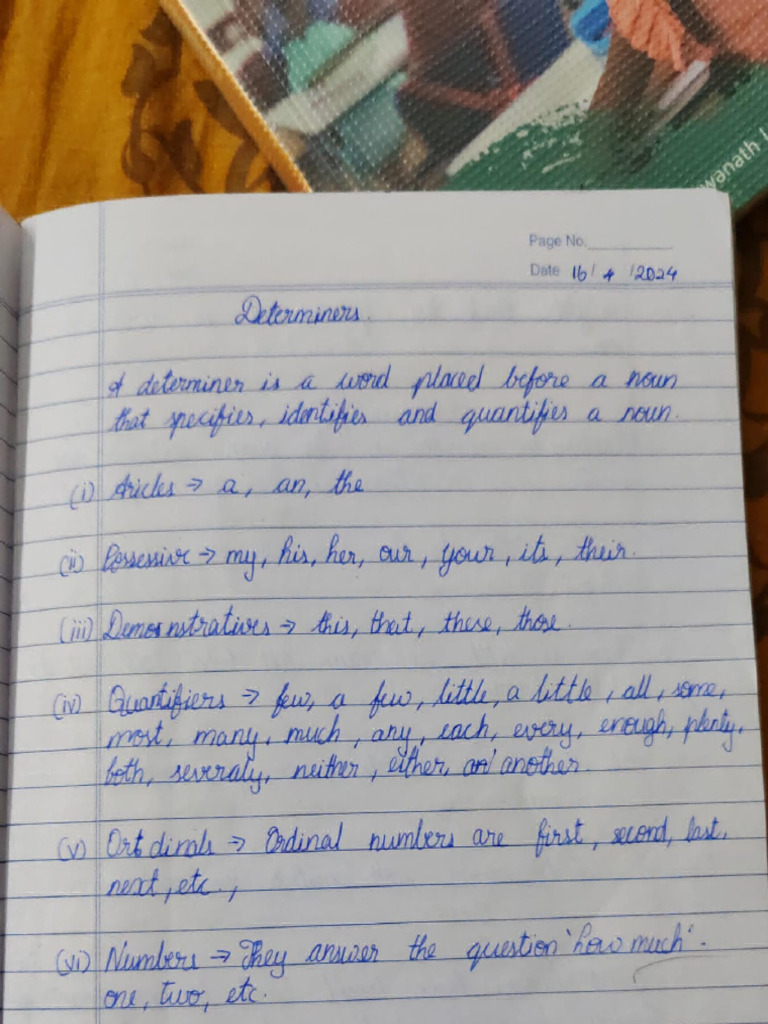 wanath
Page No.
Date 16/ 4 /2024
Determiners.
A determiner is a word placed before a noun
that specifies, identifies and quantifies a noun.
(i) Aricles → a, an, the
(ii) Possessive → my, his, her, our, your, its, their.
(iii) Demonstratives → this, that, these, those.
(iv) Quantifiers → few, a few, little, a little, all, some,
most, many, much, any, each, every, enough, plenty,
both, severaly, neither, either, an another.
(v) Ordinals → Ordinal numbers are first, second, last,
next, etc.,
(vi) Numbers → They answer the question 'how much'.
one, two, etc.